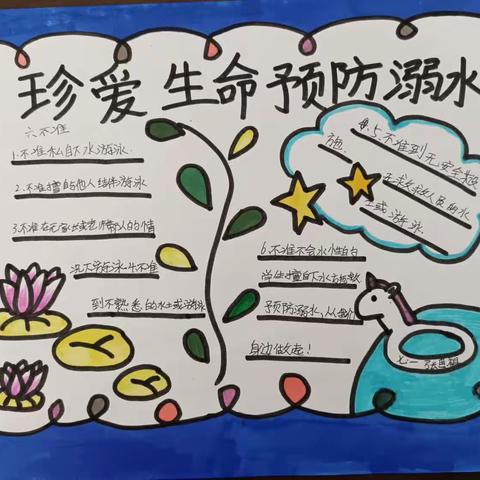 珍爱生命预防溺水
六不准
1.不准私自下水游泳.
2.不准擅自与他人结伴游泳
3.不准在无家长或老师带人的情
况下游泳.4.不准
到不熟悉的水土或游泳
5.不准到无安全设
施.
无救救人员的水
土或游泳
6.不准不会水性的
学生擅自下水施救
预防溺水,从我们
身边做起!
七一